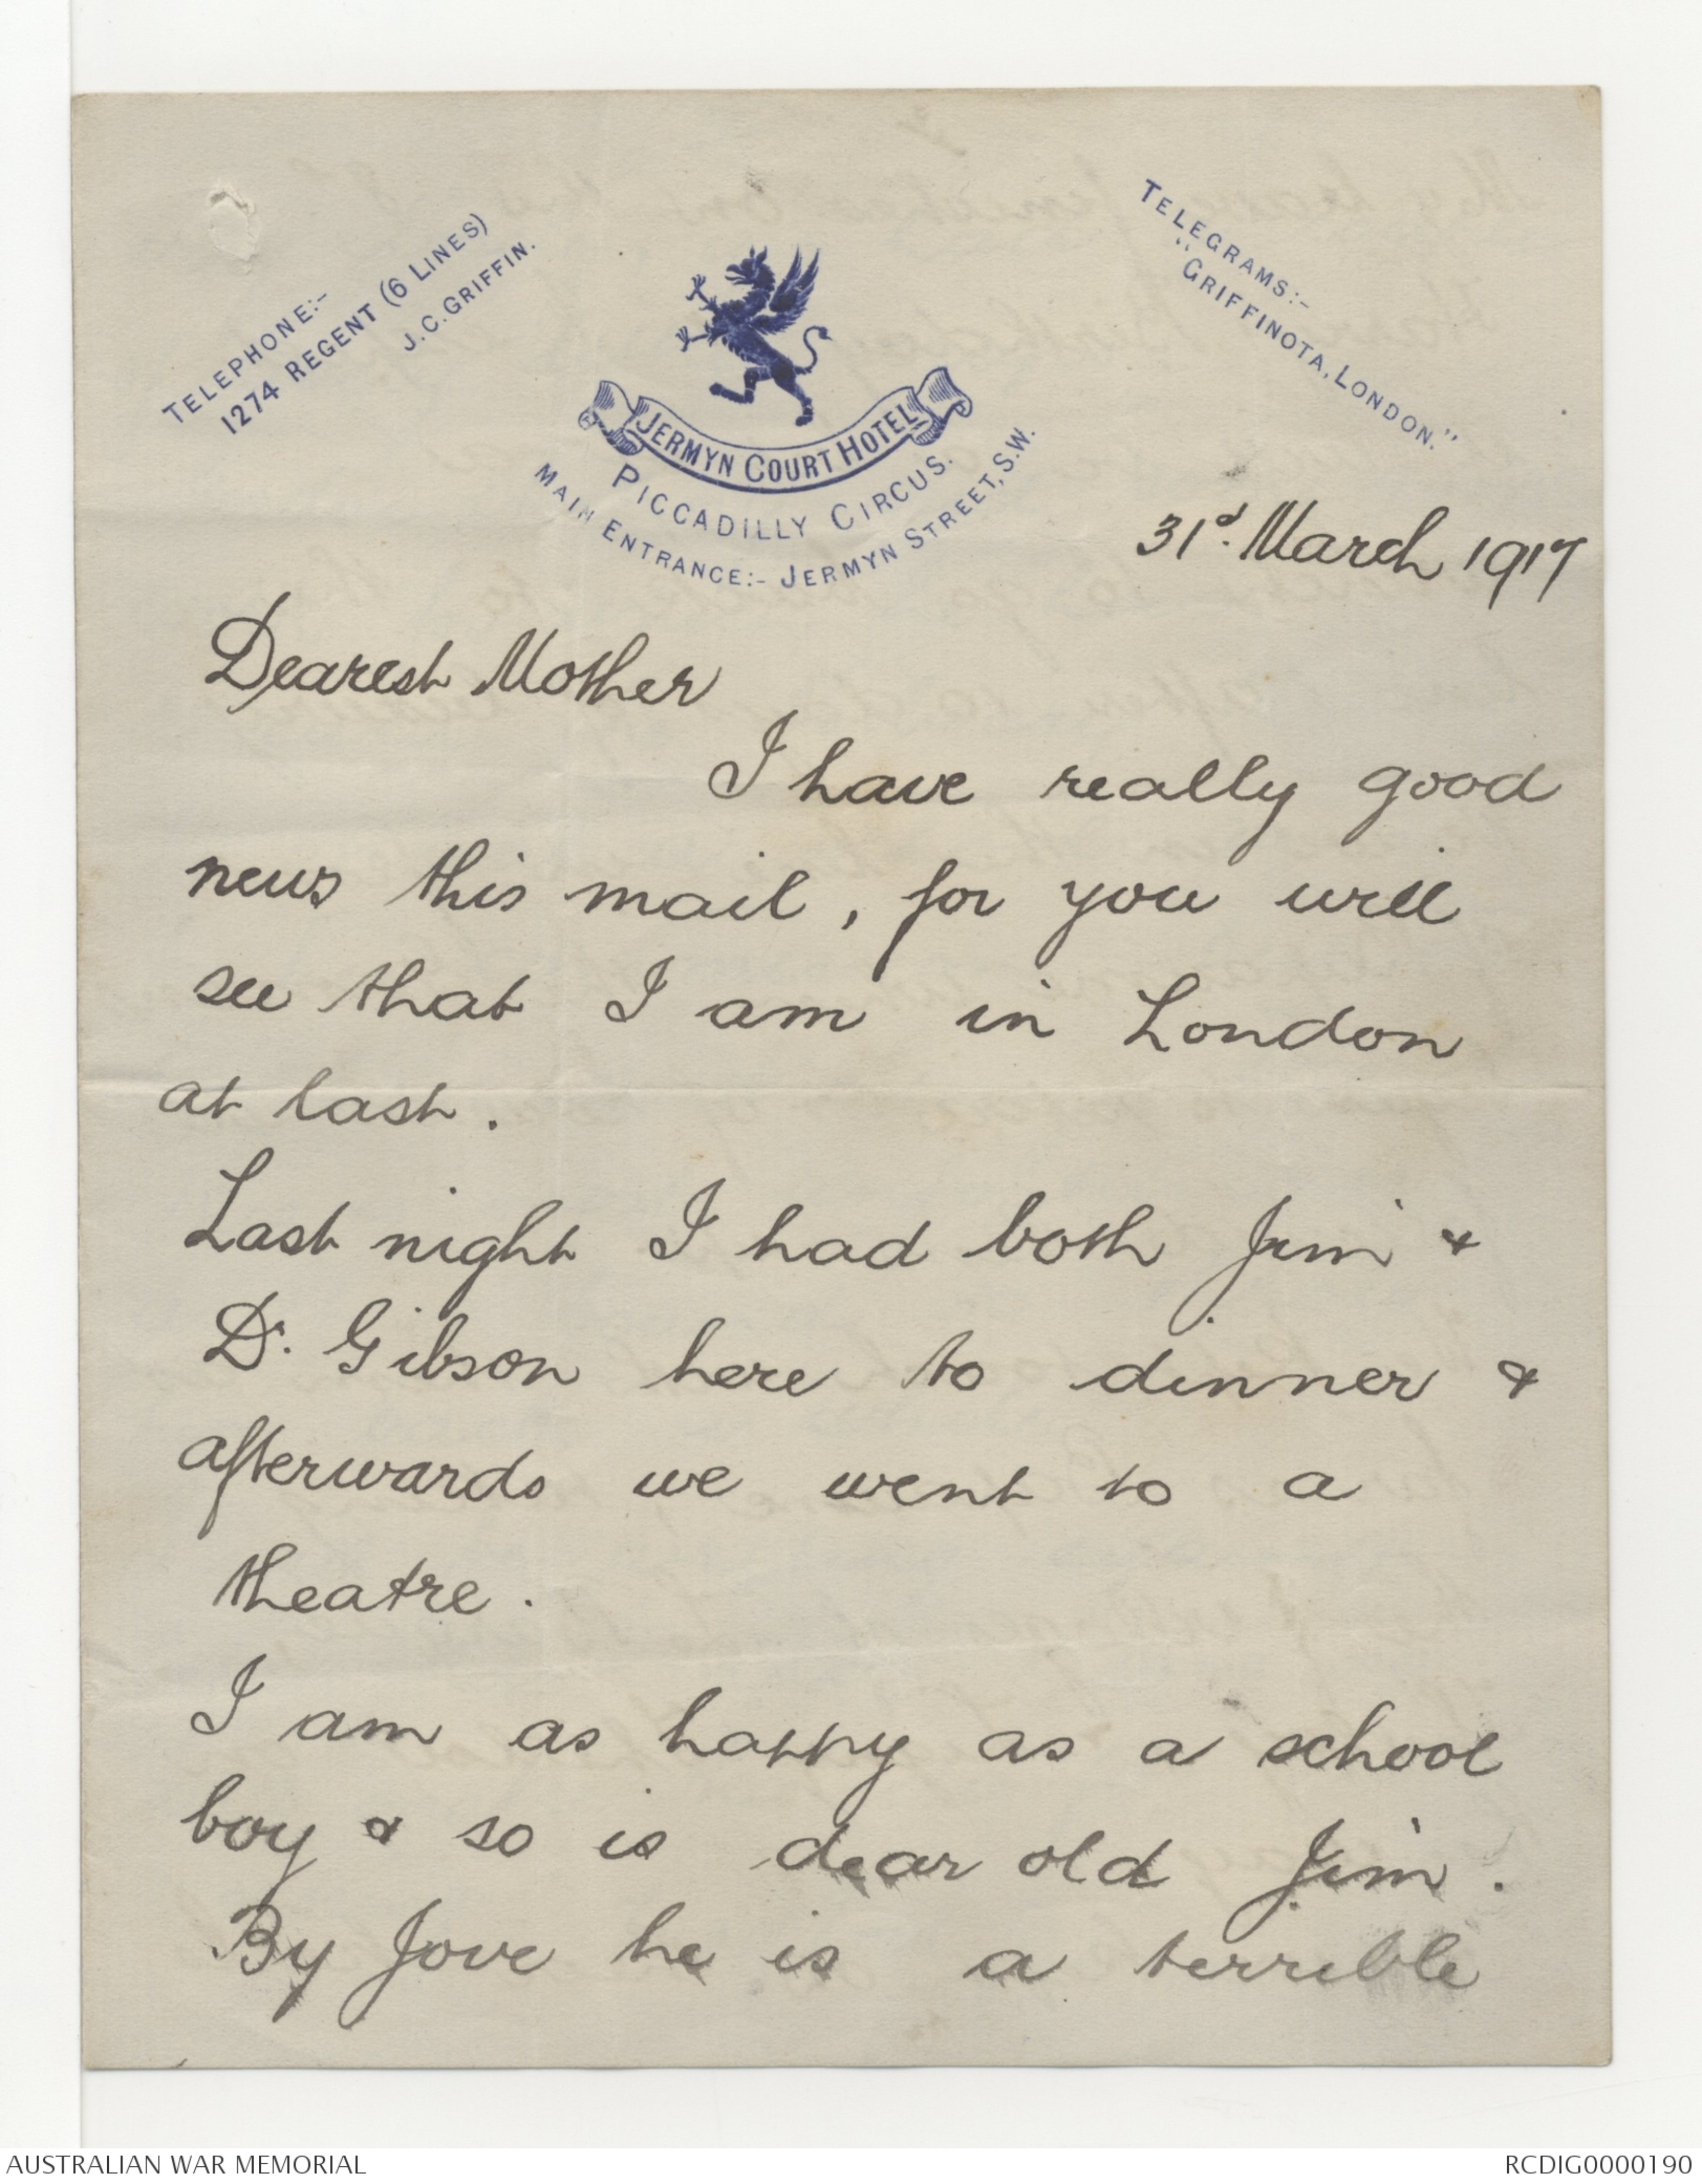 TELEPHONE:-
1274 REGENT (6 LINES)
J.C. GRIFFIN.
TELEGRAMS:-
"GRIFFINOTA, LONDON."
JERMYN COURT HOTEL
PICCADILLY CIRCUS.
MAIN ENTRANCE:- JERMYN STREET, S.W.
31d. March 1917
Dearest Mother
I have really good
news this mail, for you will
see that I am in London
at last.
Last night I had both Jim &
Dr. Gibson here to dinner &
afterwards we went to a
theatre.
I am as happy as a school
boy & so is dear old Jim.
By Jove he is a terrible
AUSTRALIAN WAR MEMORIAL
RCDIG0000190